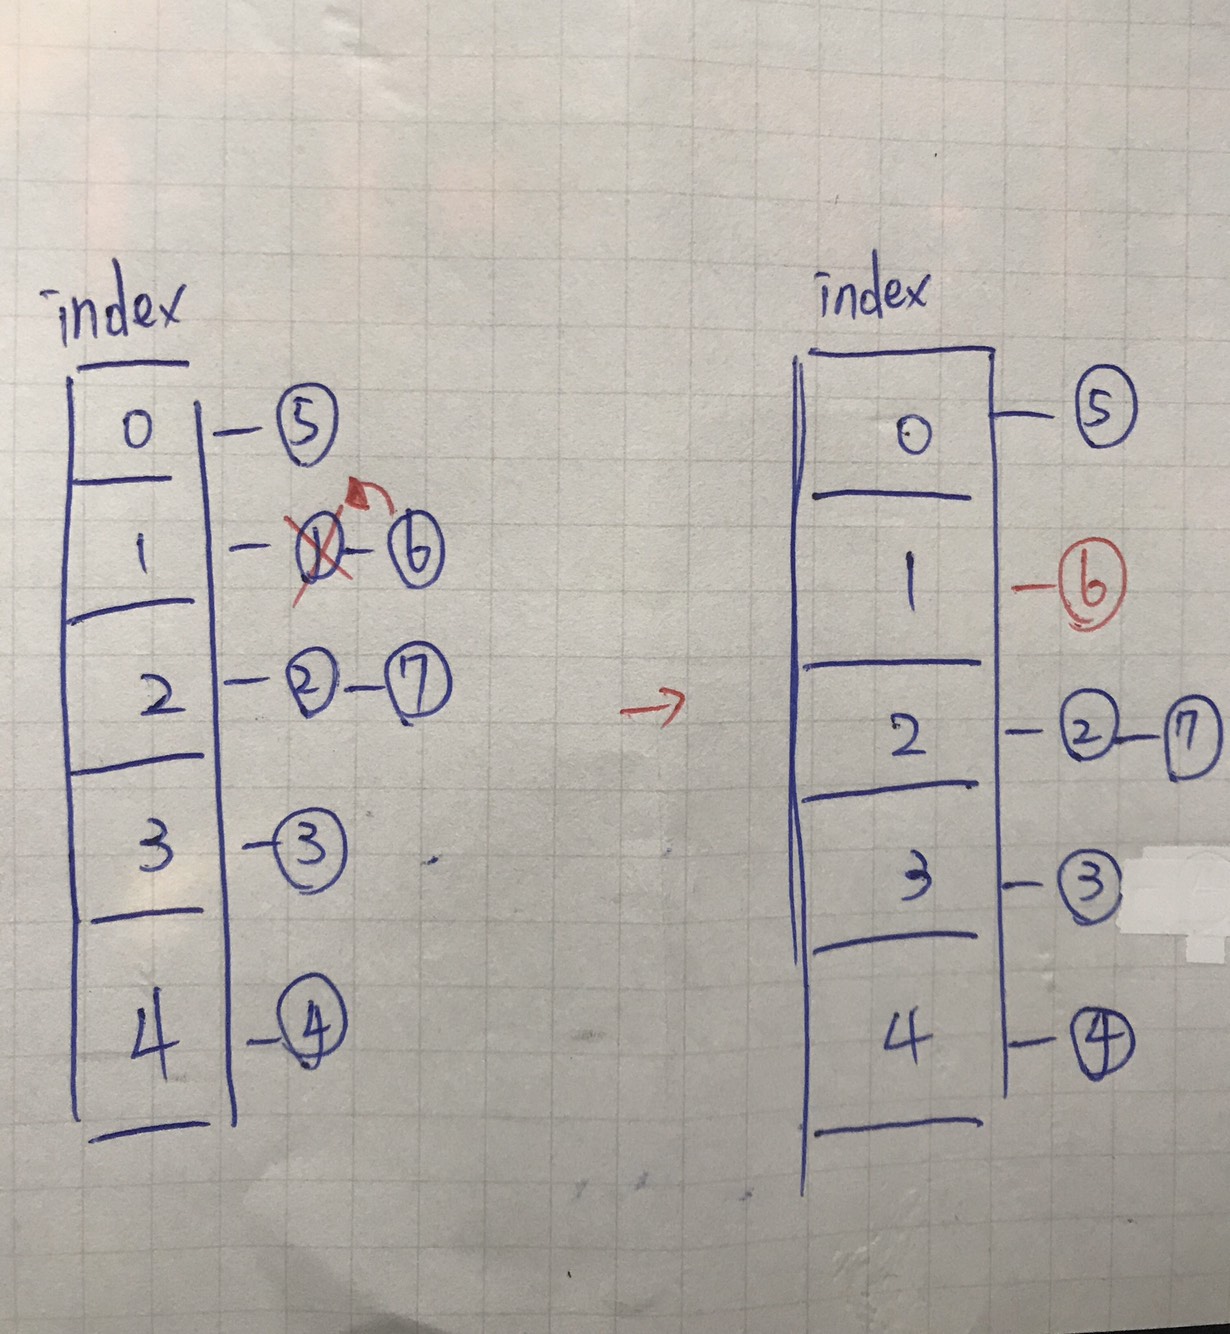 index
0 - ⑤
1 - ① - ⑥
2 - ② - ⑦
3 - ③
4 - ④
→
index
0 - ⑤
1 - ⑥
2 - ② - ⑦
3 - ③
4 - ④